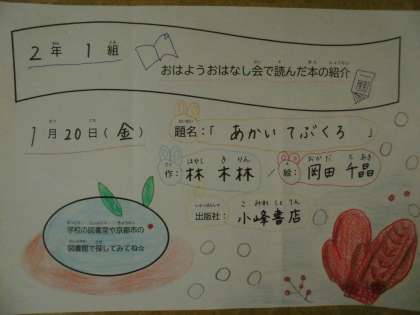 2年 1組
おはようおはなし会で読んだ本の紹介
1月20日(金)
題名:「 あかいてぶくろ 」
作: 林 木林 / 絵: 岡田 千晶
出版社: 小峰書店
学校の図書室や京都市の
図書館で探してみてね☆